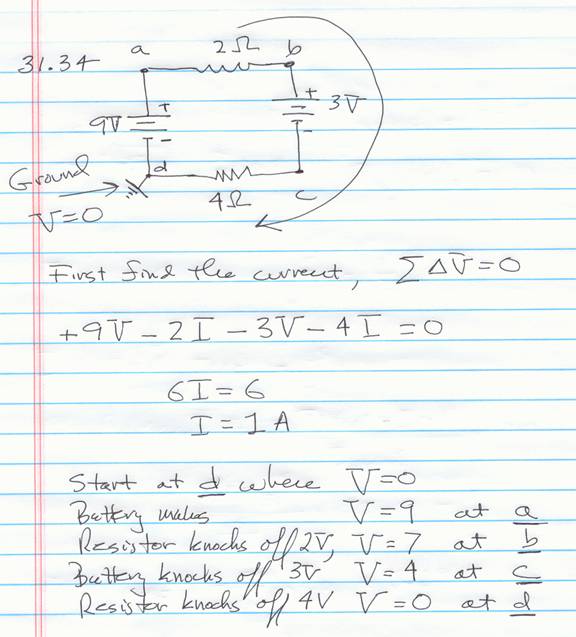 31.34
a
2Ω
b
+
9V
-
+
3V
-
d
4Ω
c
Ground
V=0
First find the current, ΣΔV=0
+9V-2I-3V-4I=0
6I=6
I=1A
Start at d where V=0
Battery makes V=9 at a
Resistor knocks off 2V, V=7 at b
Battery knocks off 3V V=4 at c
Resistor knocks off 4V V=0 at d